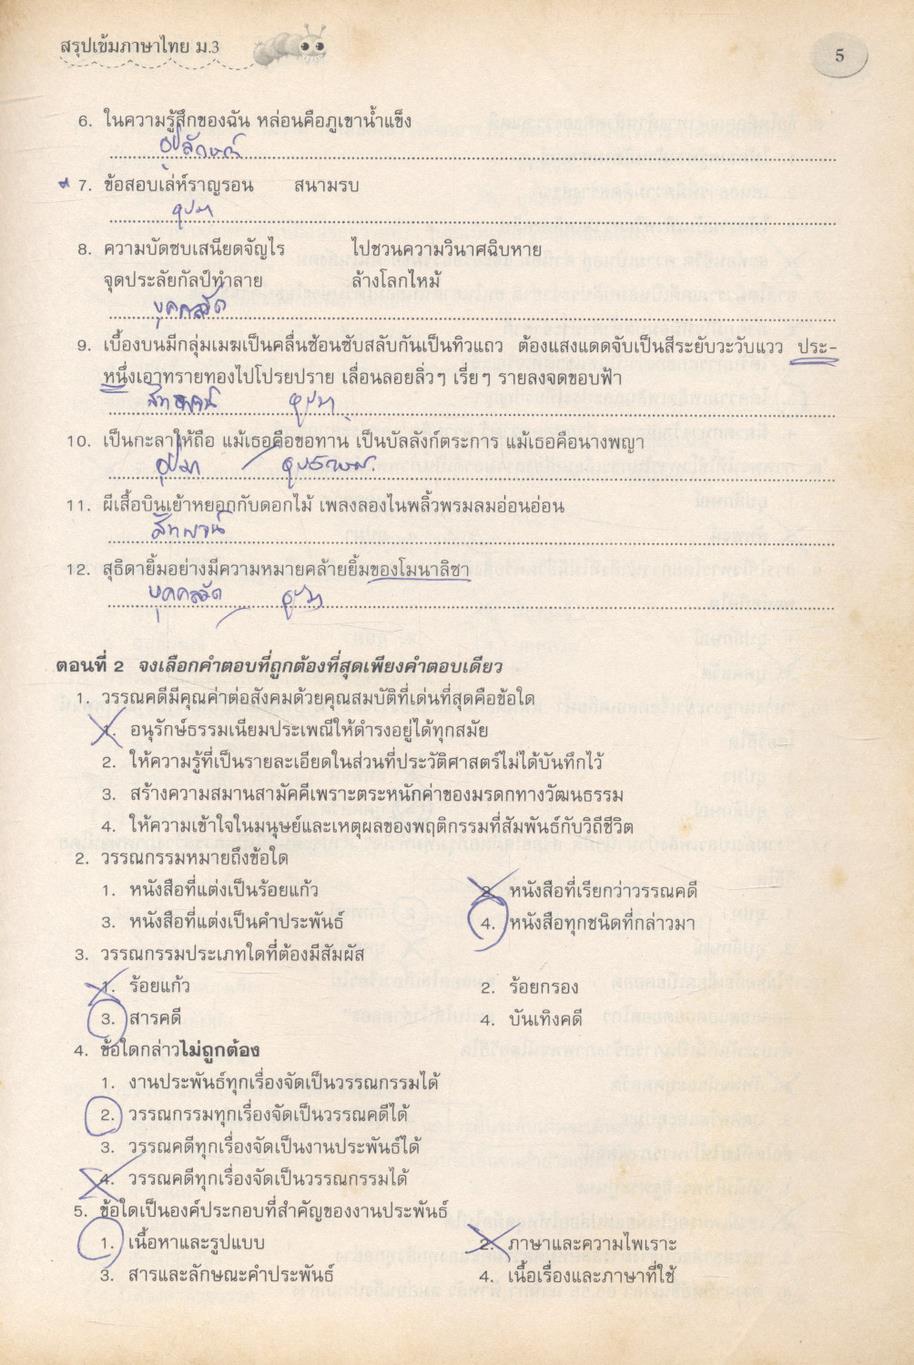 สรุปเข้มภาษาไทย ม.3
5
6. ในความรู้สึกของฉัน หล่อนคือภูเขาน้ำแข็ง
อุปลักษณ์
7. ข้อสอบเล่ห์ราญรอน สนามรบ
อุปมา
8. ความบัดซบเสนียดจัญไร ไปชวนความวินาศฉิบหาย
จุดประลัยกัลป์ทำลาย ล้างโลกไหม้
บุคคลวัต
9. เบื้องบนมีกลุ่มเมฆเป็นคลื่นซ้อนซับสลับกันเป็นทิวแถว ต้องแสงแดดจับเป็นสีระยับวะวับแวว ประ-
หนึ่งเอาทรายทองไปโปรยปราย เลื่อนลอยลิ่วๆ เรี่ยๆ รายลงจดขอบฟ้า
สัทพจน์ อุปมา
10. เป็นกะลาให้ถือ แม้เธอคือขอทาน เป็นบัลลังก์ตระการ แม้เธอคือนางพญา
อุปมา
11. ผีเสื้อบินเย้าหยอกกับดอกไม้ เพลงลองไนพลิ้วพรมลมอ่อนอ่อน
สัทพจน์
12. สุธิดายิ้มอย่างมีความหมายคล้ายยิ้มของโมนาลิซา
บุคคลวัต อุปมา
ตอนที่ 2 จงเลือกคำตอบที่ถูกต้องที่สุดเพียงคำตอบเดียว
1. วรรณคดีมีคุณค่าต่อสังคมด้วยคุณสมบัติที่เด่นที่สุดคือข้อใด
1. อนุรักษ์ธรรมเนียมประเพณีให้ดำรงอยู่ได้ทุกสมัย
2. ให้ความรู้ที่เป็นรายละเอียดในส่วนที่ประวัติศาสตร์ไม่ได้บันทึกไว้
3. สร้างความสมานสามัคคีเพราะตระหนักค่าของมรดกทางวัฒนธรรม
4. ให้ความเข้าใจในมนุษย์และเหตุผลของพฤติกรรมที่สัมพันธ์กับวิถีชีวิต
2. วรรณกรรมหมายถึงข้อใด
1. หนังสือที่แต่งเป็นร้อยแก้ว 2. หนังสือที่เรียกว่าวรรณคดี
3. หนังสือที่แต่งเป็นคำประพันธ์ 4. หนังสือทุกชนิดที่กล่าวมา
3. วรรณกรรมประเภทใดที่ต้องมีสัมผัส
1. ร้อยแก้ว 2. ร้อยกรอง
3. สารคดี 4. บันเทิงคดี
4. ข้อใดกล่าวไม่ถูกต้อง
1. งานประพันธ์ทุกเรื่องจัดเป็นวรรณกรรมได้
2. วรรณกรรมทุกเรื่องจัดเป็นวรรณคดีได้
3. วรรณคดีทุกเรื่องจัดเป็นงานประพันธ์ได้
4. วรรณคดีทุกเรื่องจัดเป็นวรรณกรรมได้
5. ข้อใดเป็นองค์ประกอบที่สำคัญของงานประพันธ์
1. เนื้อหาและรูปแบบ 2. ภาษาและความไพเราะ
3. สารและลักษณะคำประพันธ์ 4. เนื้อเรื่องและภาษาที่ใช้